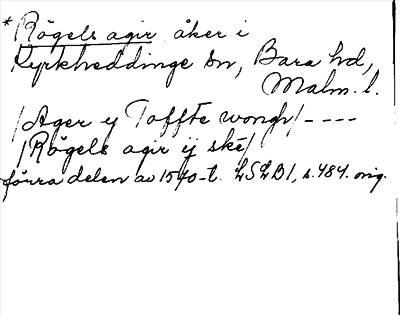 * Rögels agir åker i
Kyrkheddinge sn, Bara hd,
Malm. l.
/Ager ij Toffte wongh/ ----
/Rögels agir ij ske/
förra delen av 1570-t. LSLB1, s. 484. orig.